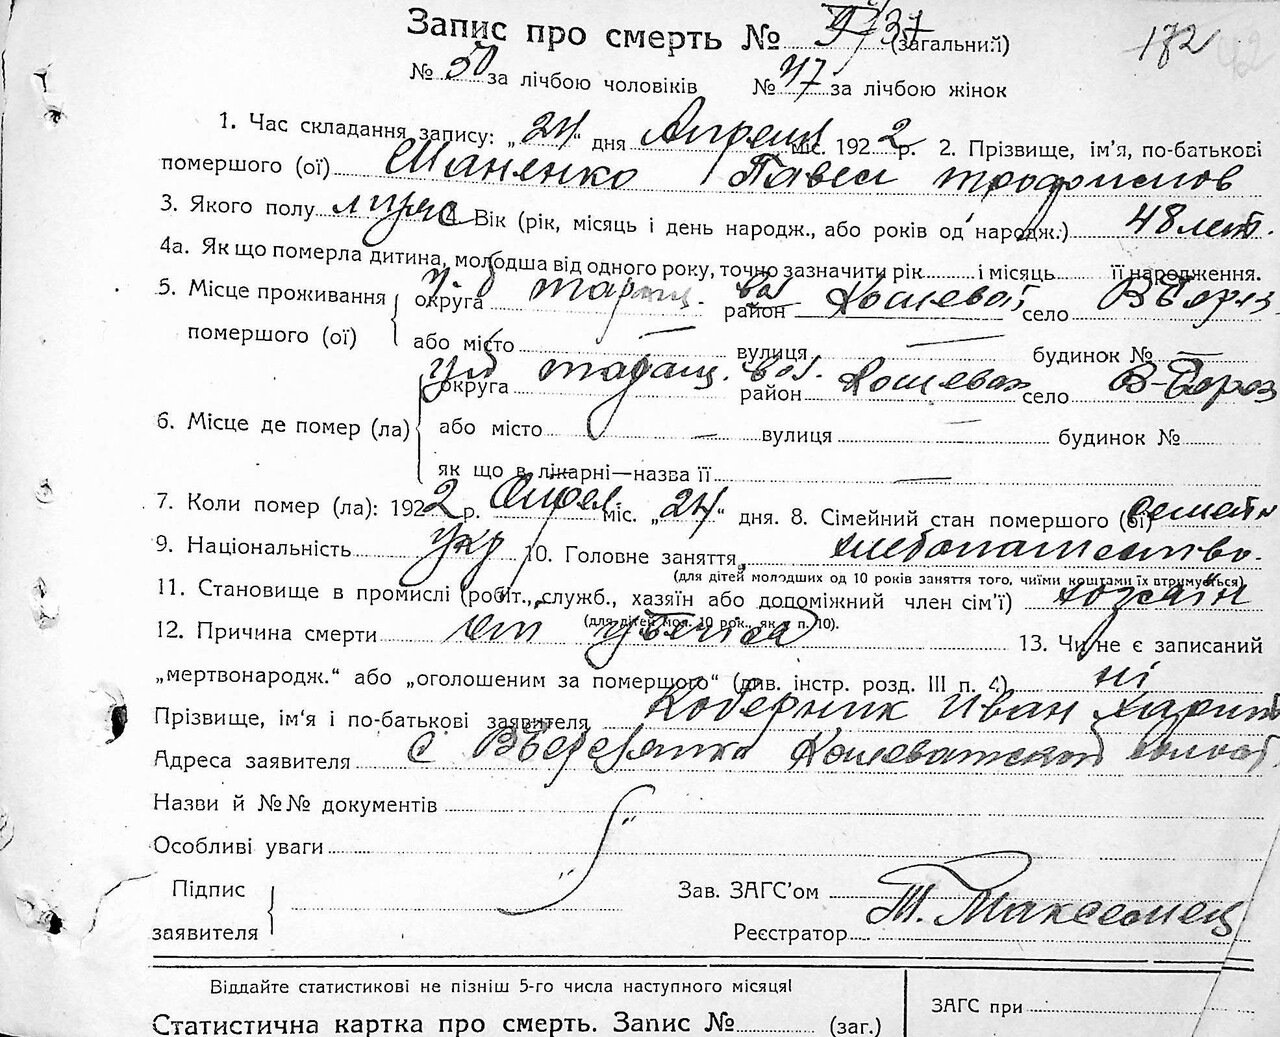 Запис про смерть № 97/37 (загальний) 172 42
№ 50 за лічбою чоловіків № 47 за лічбою жінок
1. Час складання запису: „24“ дня Апреля міс. 1922 р. 2. Прізвище, ім'я, по-батькові
помершого (ої) Шаненко Павел Трофимов
3. Якого полу муж 4. Вік (рік, місяць і день народж., або років од народж.) 48 лет.
4а. Як що померла дитина, молодша від одного року, точно зазначити рік і місяць її народження.
5. Місце проживання округа Таращ. вол район Кошеват село В-Берез
помершого (ої) або місто вулиця будинок №
округа Таращ. вол. район Кошеват село В-Берез
6. Місце де помер (ла) або місто вулиця будинок №
як що в лікарні—назва її
7. Коли помер (ла): 1922 р. Апрел міс. „24“ дня. 8. Сімейний стан помершого (ої) семейн
9. Національність укр 10. Головне заняття хлебопашество.
(для дітей молодших од 10 років заняття того, чиїми коштами їх втримується)
11. Становище в промислі (робіт., служб., хазяїн або допоміжний член сім'ї) хозяїн
(для дітей мол. 10 рок., як в п. 10).
12. Причина смерти от 13. Чи не є записаний
„мертвонародж.“ або „оголошеним за помершого“ (див. інстр. розд. III п. 4) ні
Прізвище, ім'я і по-батькові заявителя Коберник Иван Харит
Адреса заявителя с Вберезянка Кошеватской волост
Назви й №№ документів
Особливі уваги
Підпис Зав. ЗАГС'ом
заявителя Реєстратор Т. Максемец
Віддайте статистикові не пізніш 5-го числа наступного місяця!
ЗАГС при
Статистична картка про смерть. Запис № (заг.)